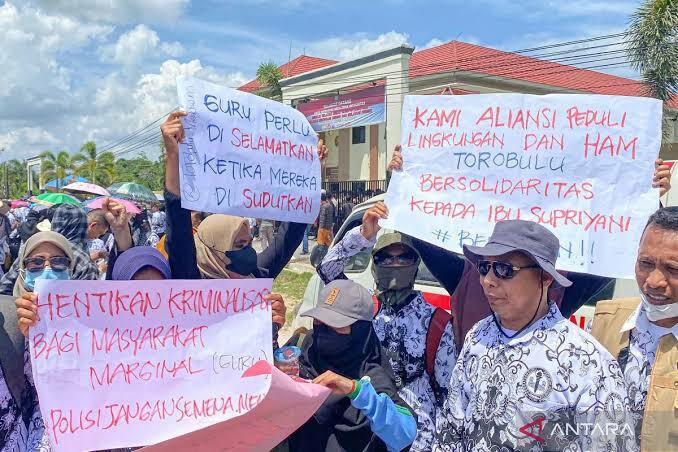 GURU PERLU
DI SELAMATKAN
KETIKA MEREKA
DI SUDUTKAN
KAMI ALIANSI PEDULI
LINGKUNGAN DAN HAM
TOROBULU
BERSOLIDARITAS
KEPADA IBU SUPRIYANI
HENTIKAN KRIMINALISASI
BAGI MASYARAKAT
MARGINAL (GURU)
POLISI JANGAN SEMENA.MEN
ANTARA